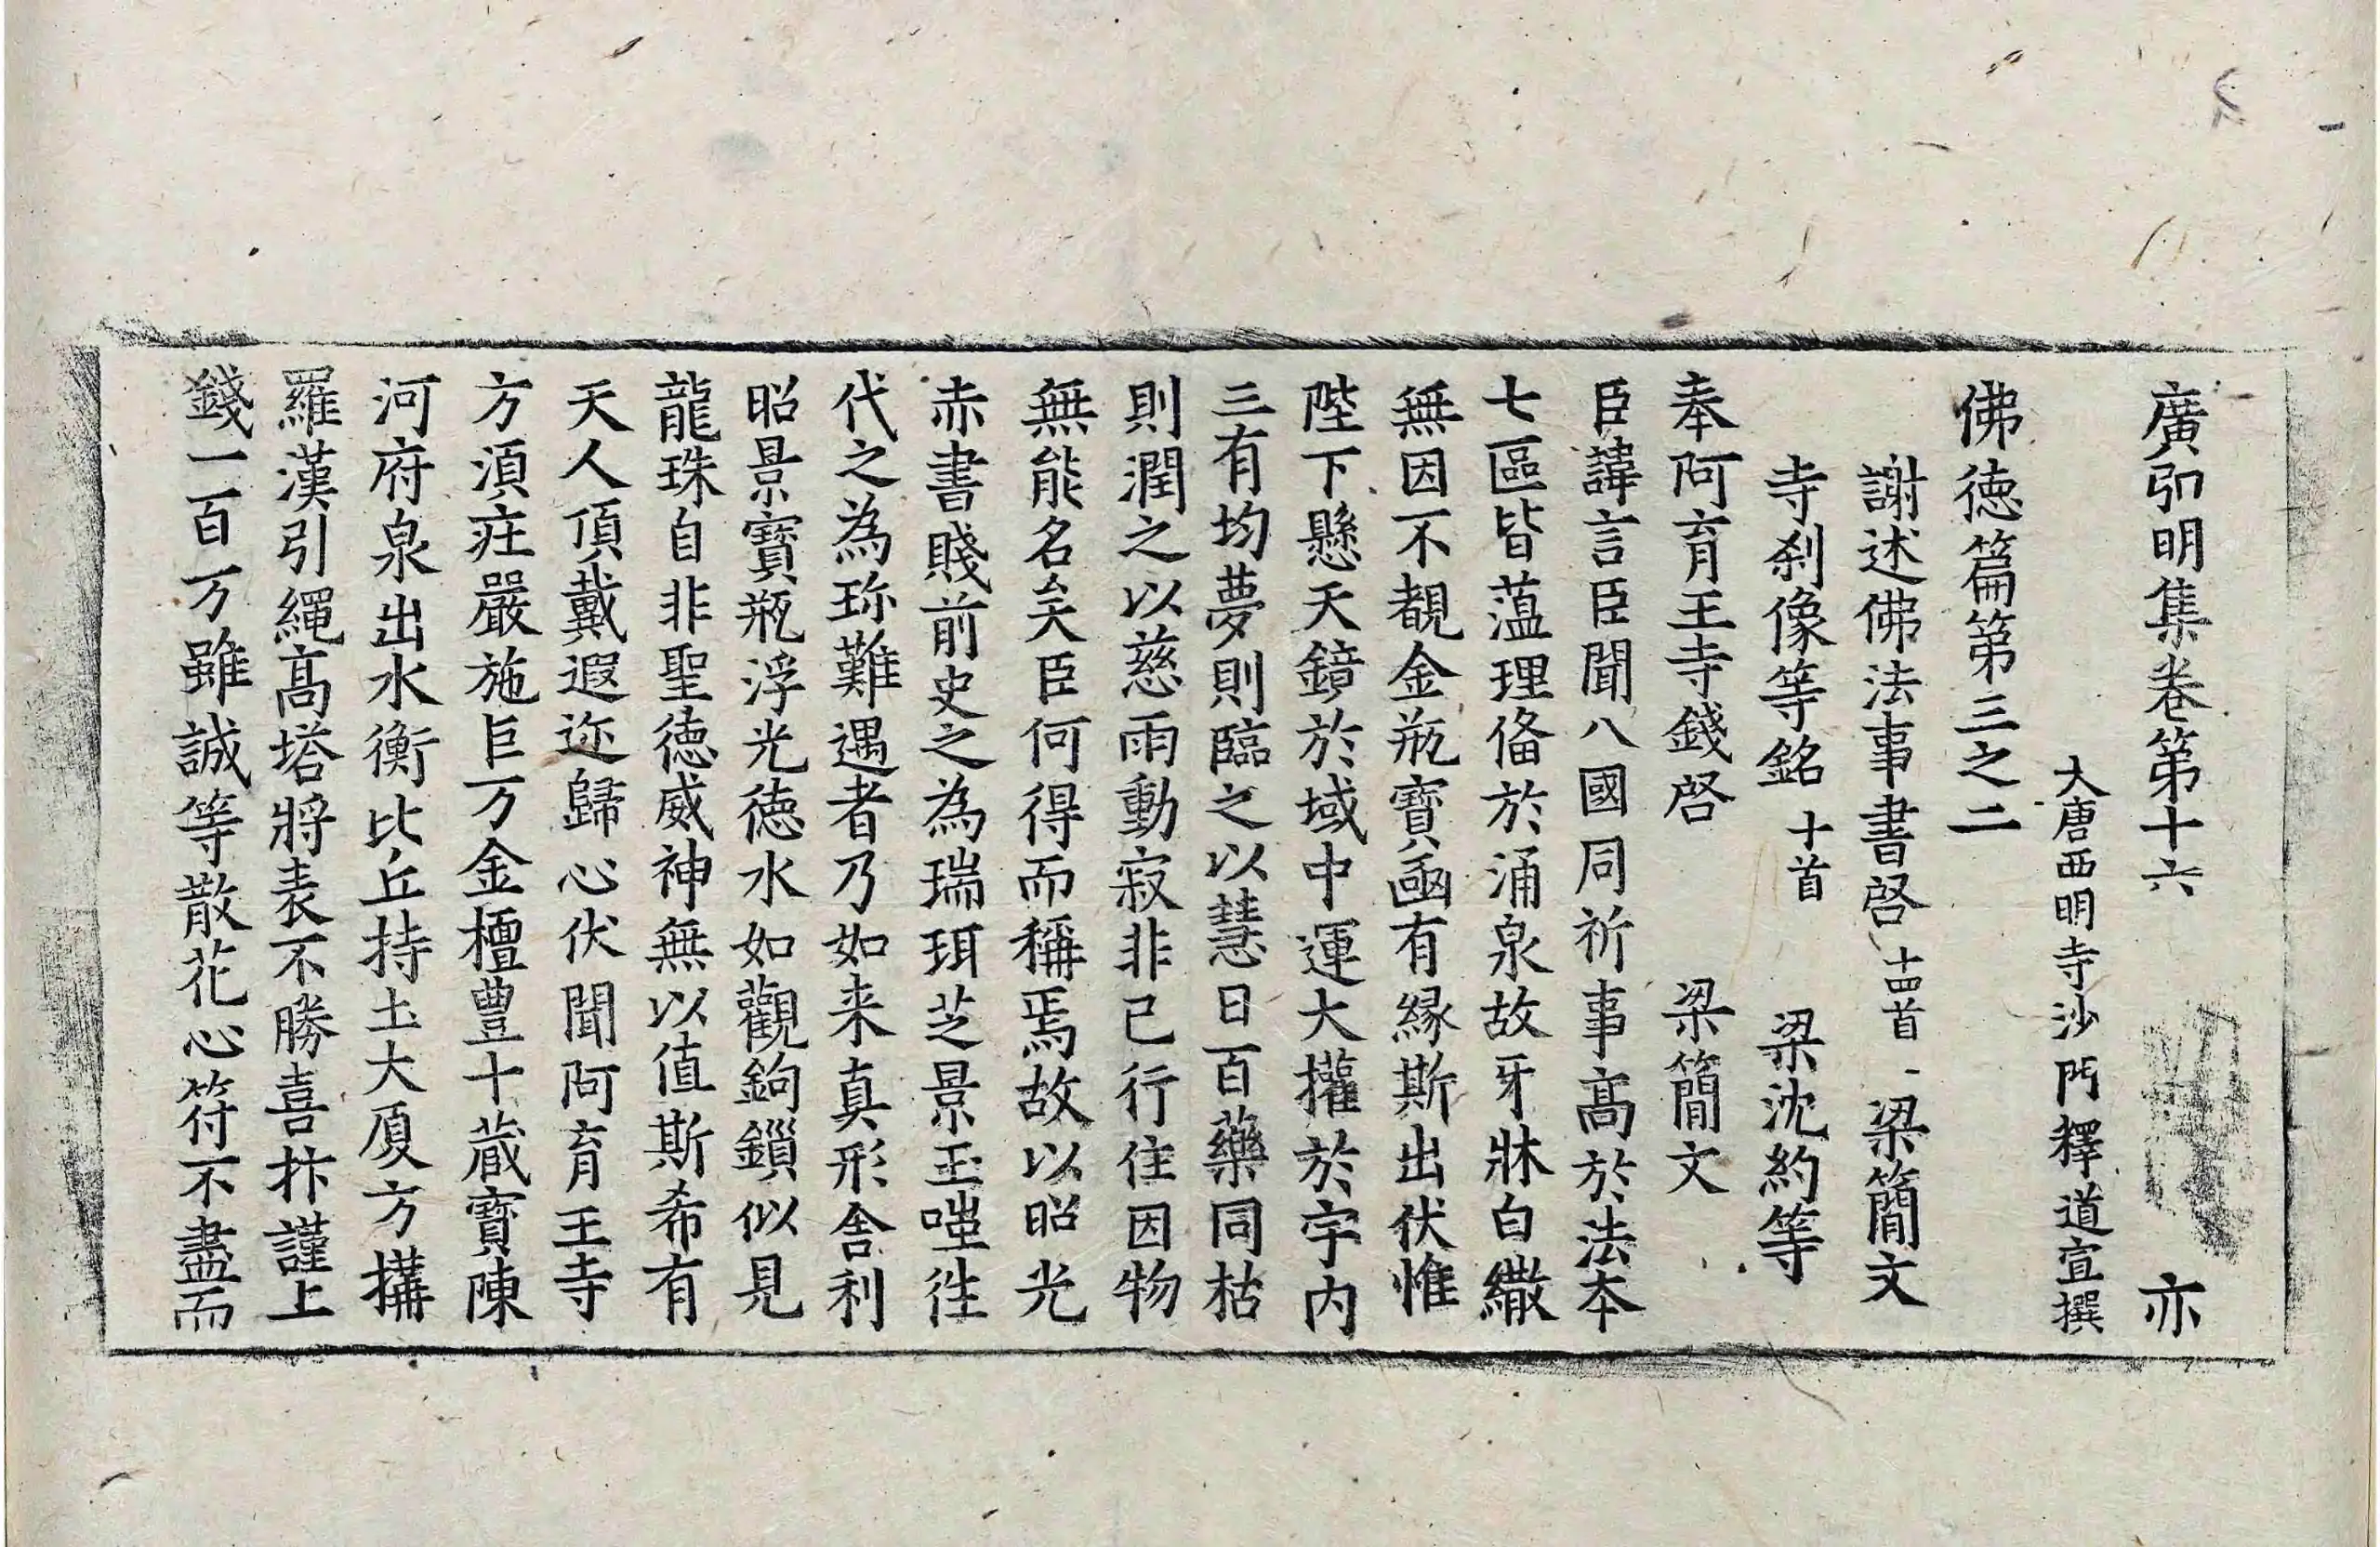 廣弘明集卷第十六 亦
大唐西明寺沙門釋道宣撰
佛徳篇第三之二
謝述佛法事書啓 十四首 梁簡文
寺刹像等銘 十首 梁沈約等
奉阿育王寺錢啓 梁簡文
臣諱言臣聞八國同祈事髙於法本
七區皆薀理俻於涌泉故牙牀白繖
無因不覩金瓶寶凾有縁斯出伏惟
陛下懸天鏡於域中運大攉於宇内
三有均夢則臨之以慧日百藥同枯
則潤之以慈雨動寂非已行住因物
無能名矣臣何得而稱焉故以昭光
赤書賤前史之為瑞珥芝景玉嗤徃
代之為珎難遇者乃如来真形舎利
昭景寶瓶浮光徳水如觀鉤鎻似見
龍珠自非聖徳威神無以值斯希有
天人頂戴遐迩歸心伏聞阿育王寺
方湏莊嚴施巨万金檀豊十蔵寶陳
河府泉出水衡比丘持土大厦方搆
羅漢引繩髙塔將表不勝喜抃謹上
錢一百万雖誠等散花心符不盡而